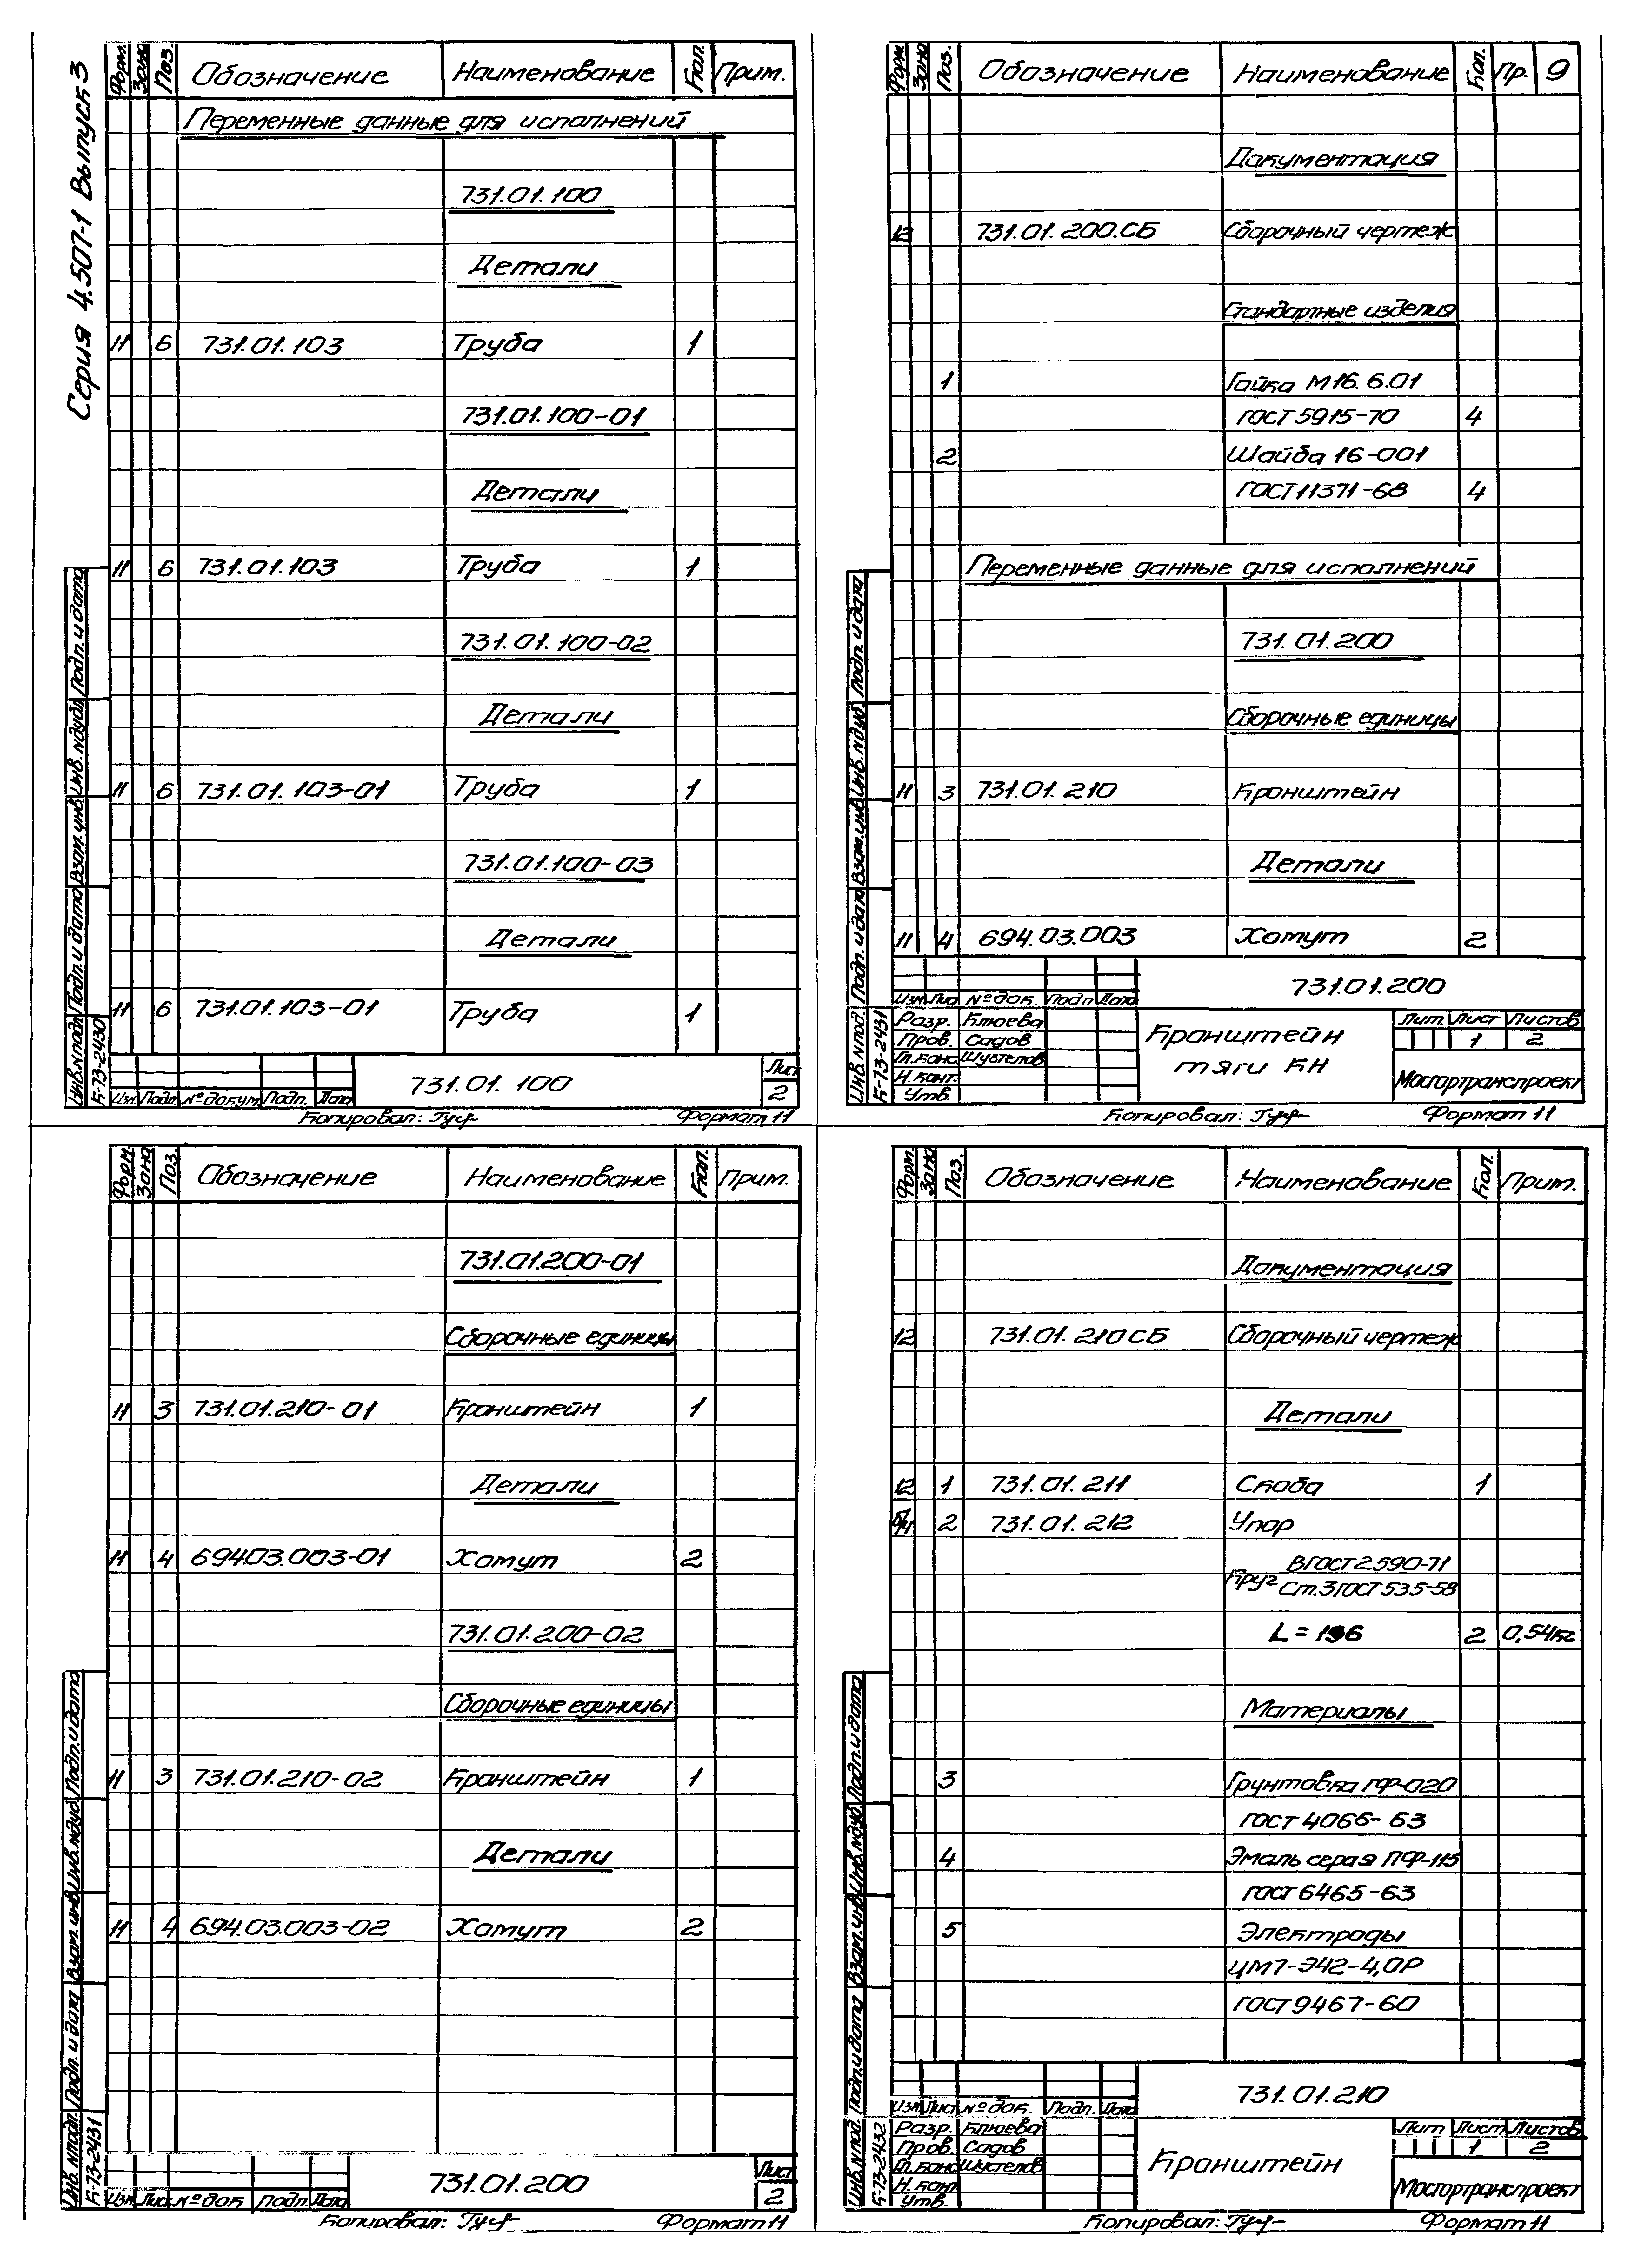 Серия 4.507-1 Выпуск 3
Форм. Зона Поз. Обозначение Наименование Кол. Прим.
Переменные данные для исполнений
731.01.100
Детали
11 6 731.01.103 Труба 1
731.01.100-01
Детали
11 6 731.01.103 Труба 1
731.01.100-02
Детали
11 6 731.01.103-01 Труба 1
731.01.100-03
Детали
11 6 731.01.103-01 Труба 1
Инв.№подл. Подп. и дата Взам.инв. Инв.№дубл Подп. и дата
Б-73-2430
731.01.100
Лист
2
Изм Подп. №докум Подп. Дата
Копировал: Формат 11
Форм Зона Поз. Обозначение Наименование Кол. Пр. 9
Документация
12 731.01.200.СБ Сборочный чертеж
Стандартные изделия
1 Гайка М16.6.01
ГОСТ 5915-70 4
2 Шайба 16-001
ГОСТ 11371-68 4
Переменные данные для исполнений
731.01.200
Сборочные единицы
11 3 731.01.210 Кронштейн
Детали
11 4 694.03.003 Хомут 2
Инв.№подл. Подп. и дата Взам.инв Инв.№дуб Подп. и дата
Б-73-2431
731.01.200
Изм Лис №док. Подп Дата
Разр. Клюева
Пров. Садов
Гл.конс Шустелов
Н.конт.
Утв.
Кронштейн
тяги КН
Лит. Лист Листов
1 2
Мосгортранспроект
Копировал: Формат 11
Форм. Зона Поз. Обозначение Наименование Кол. Прим.
731.01.200-01
Сборочные единицы
11 3 731.01.210-01 Кронштейн 1
Детали
11 4 694.03.003-01 Хомут 2
731.01.200-02
Сборочные единицы
11 3 731.01.210-02 Кронштейн 1
Детали
11 4 694.03.003-02 Хомут 2
Инв.№подл. Подп. и дата Взам.инв Инв.№дуб Подп. и дата
Б-73-2431
731.01.200
Лист
2
Изм Лис №док Подп Дата
Копировал: Формат 11
Форм. Зона Поз. Обозначение Наименование Кол. Прим.
Документация
12 731.01.210СБ Сборочный чертеж
Детали
12 1 731.01.211 Скоба 1
б/ч 2 731.01.212 Упор
Круг В ГОСТ 2590-71
Ст.3 ГОСТ 535-58
L = 196 2 0,54кг
Материалы
3 Грунтовка ГФ-020
ГОСТ 4066-63
4 Эмаль серая ПФ-115
ГОСТ 6465-63
5 Электроды
ЦМ7-Э42-4,0Р
ГОСТ 9467-60
Инв.№под. Подп. и дата Взам.инв Инв.№дуб Подп. и дата
Б-73-2432
731.01.210
Изм Лист №док. Подп. Дата
Разр. Клюева
Пров. Садов
Гл.конс Шустелов
Н.конт
Утв.
Кронштейн
Лит Лист Листов
1 2
Мосгортранспроект
Копировал: Формат 11